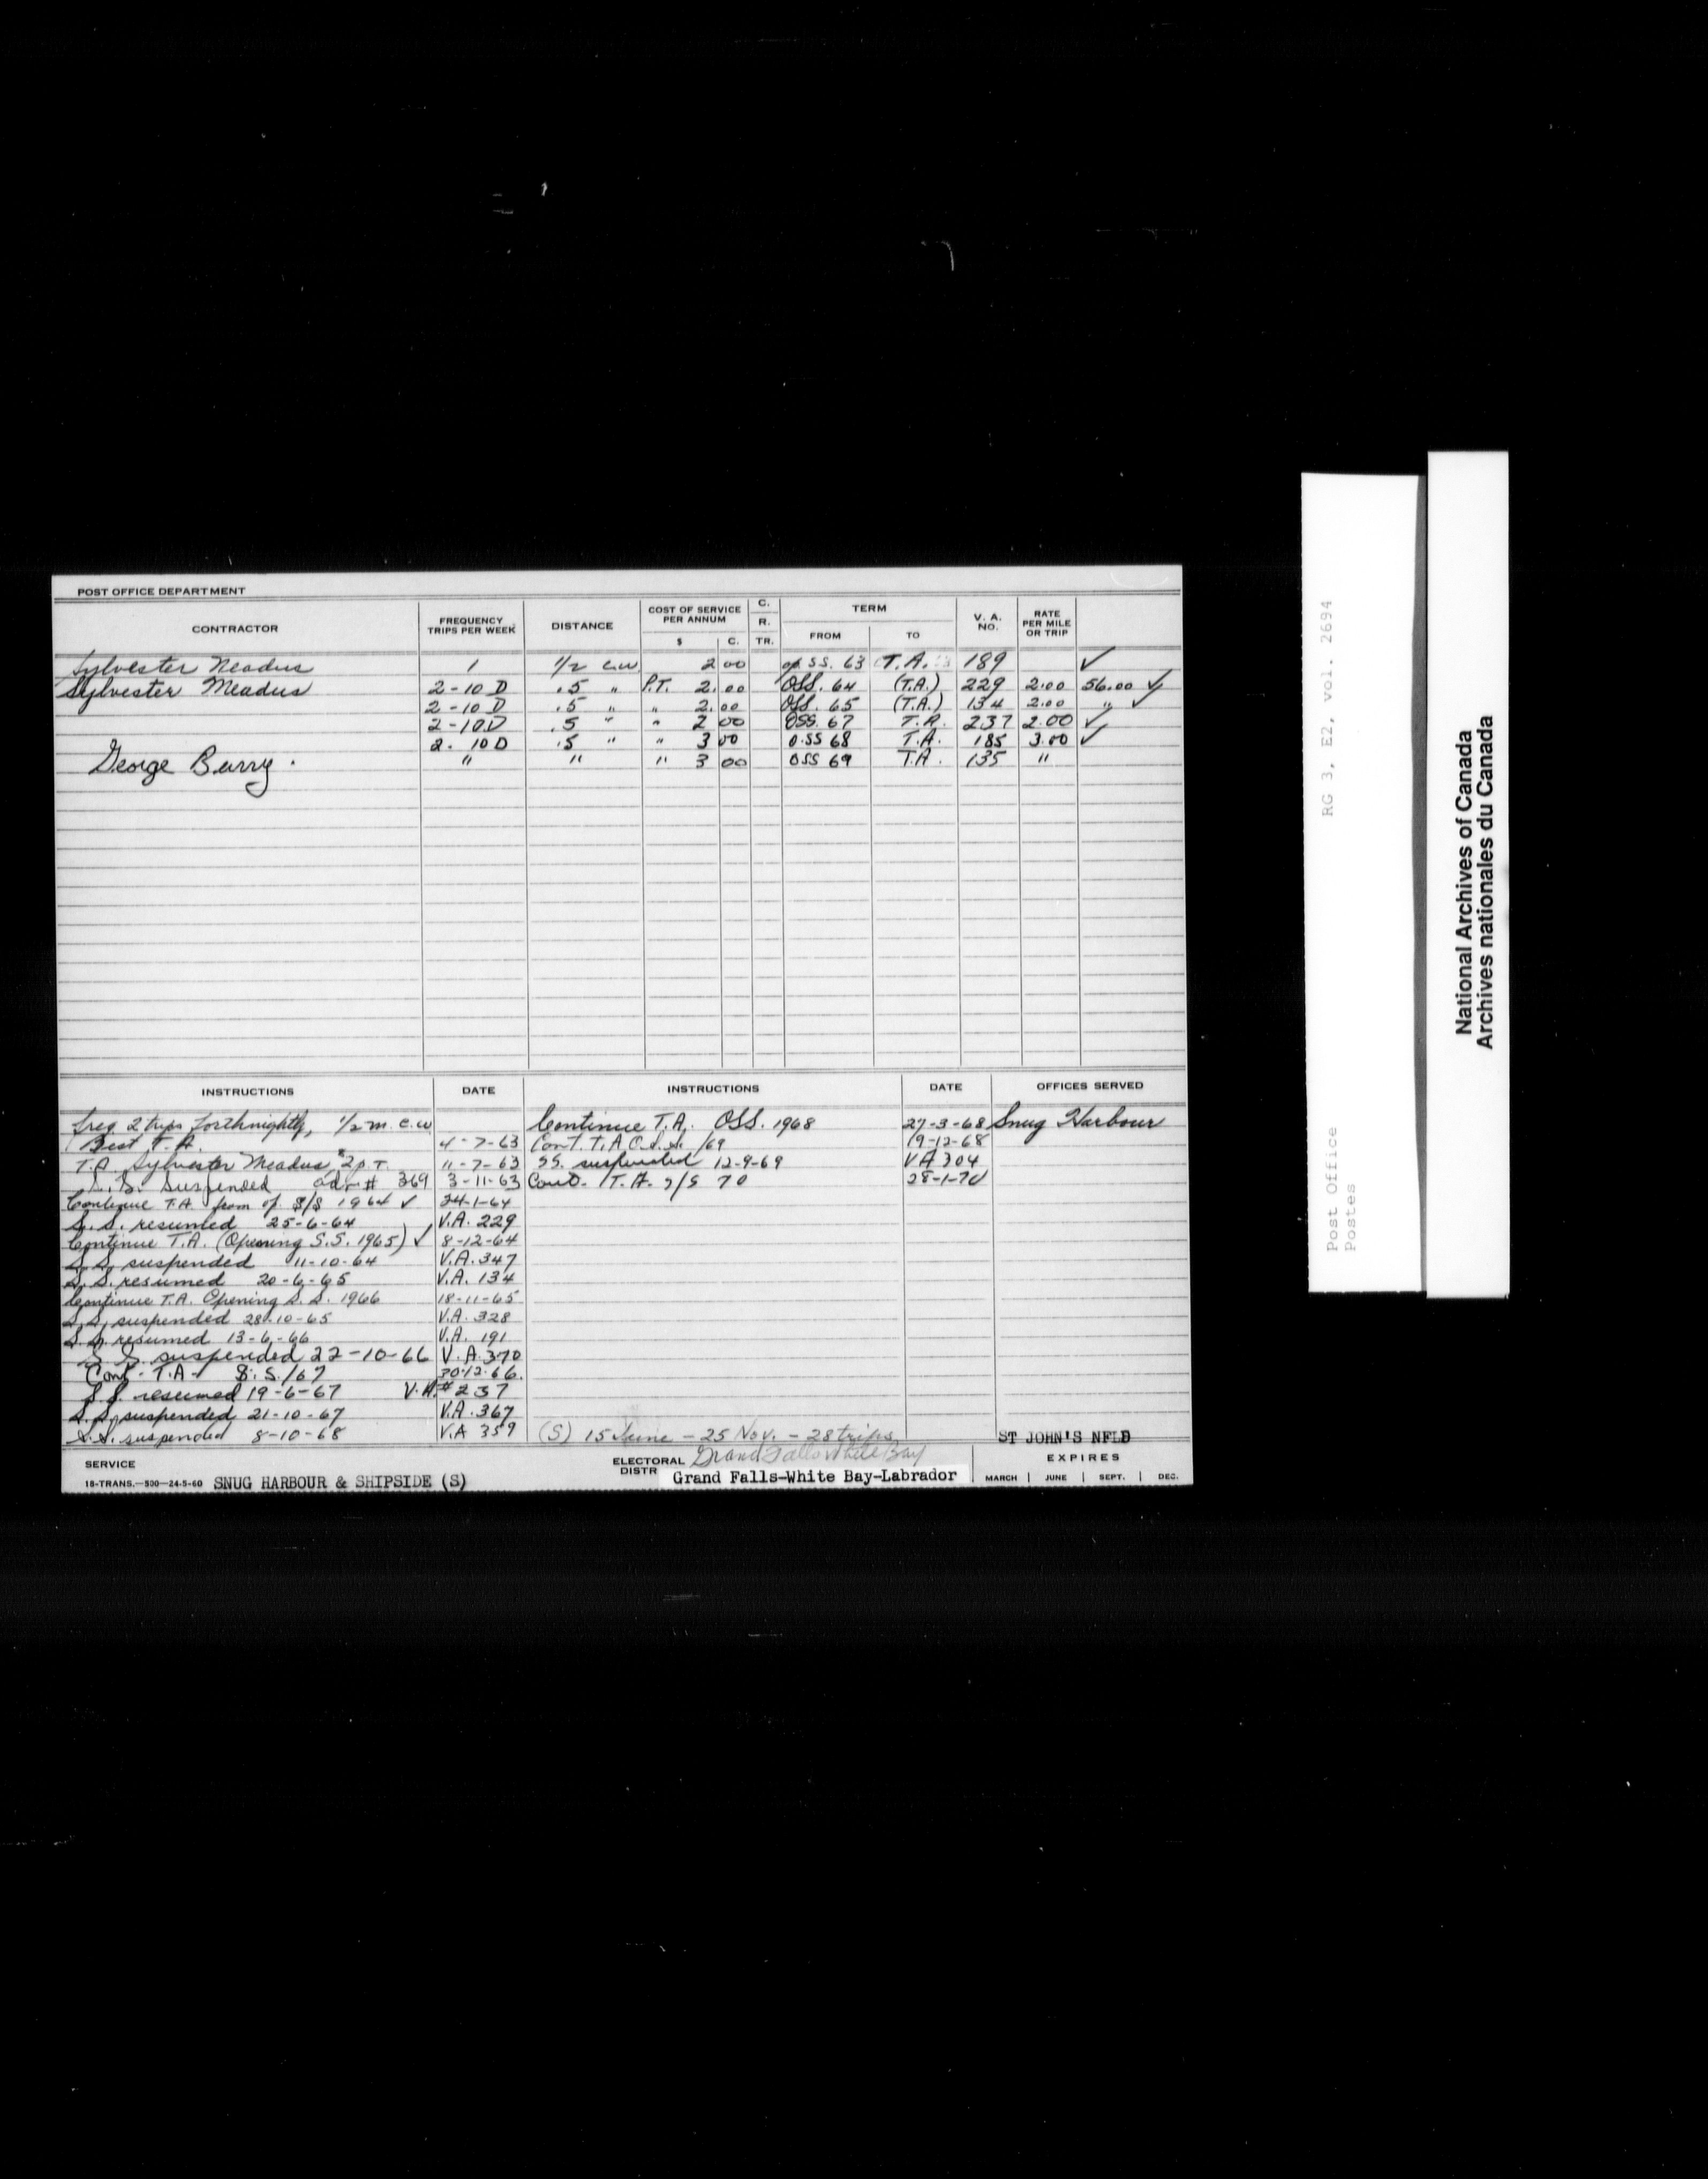 POST OFFICE DEPARTMENT
CONTRACTOR FREQUENCY TRIPS PER WEEK DISTANCE COST OF SERVICE PER ANNUM $ C. C. R. TR. TERM FROM TO V. A. NO. RATE PER MILE OR TRIP
Sylvester Meadus 1 1/2 c.w 2 00 op SS. 63 T.A. 189 ✓
Sylvester Meadus 2-10 D .5 " P.T. 2.00 OSS. 64 (T.A.) 229 2.00 56.00 ✓
2-10 D .5 " " 2.00 OSS. 65 (T.A.) 134 2.00 " ✓
2-10D .5 " " 2 00 OSS. 67 T.A. 237 2.00 ✓
2. 10D .5 " " 3 00 O.SS 68 T.A. 185 3.00 ✓
George Barry. " " " 3 00 OSS 69 T.A. 135 "
INSTRUCTIONS DATE INSTRUCTIONS DATE OFFICES SERVED
freq 2 trips forthnightly, 1/2 m. c.w Continue T.A. OSS. 1968 27-3-68 Snug Harbour
Best T.A. 4-7-63 Cont. T.A O.S.S. /69 19-12-68
T.A. Sylvester Meadus $2 p.T. 11-7-63 SS. suspended 12-9-69 VA 304
S.S. Suspended adv # 369 3-11-63 Cont. T.A. S/S 70 28-1-70
Continue T.A. from op. S/S 1964 ✓ 24-1-64
S.S. resumed 25-6-64 V.A. 229
Continue T.A. (Opening S.S. 1965) ✓ 8-12-64
S.S. suspended 11-10-64 V.A. 347
S.S. resumed 20-6-65 V.A. 134
Continue T.A. Opening S.S. 1966 18-11-65
S.S. suspended 28-10-65 V.A. 328
S.S. resumed 13-6-66 V.A. 191
S.S. suspended 22-10-66 V.A. 370
Cont. T.A S.S./67 30-12-66.
S.S. resumed 19-6-67 V.A.# 237
S.S. suspended 21-10-67 V.A. 367
S.S. suspended 8-10-68 V.A 359 (S) 15 June - 25 Nov. - 28 trips ST JOHN'S NFLD
SERVICE ELECTORAL DISTR Grand Falls White Bay EXPIRES
18-TRANS.—500—24-5-60 SNUG HARBOUR & SHIPSIDE (S) Grand Falls-White Bay-Labrador MARCH | JUNE | SEPT. | DEC.
Post Office RG 3, E2, vol. 2694
Postes
National Archives of Canada
Archives nationales du Canada